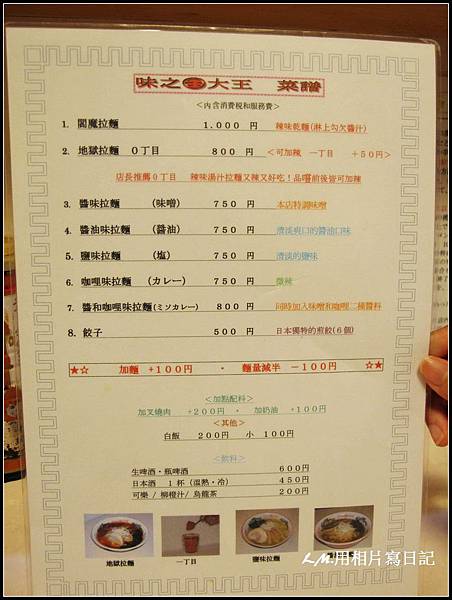 味之大王 菜譜
<內含消費稅和服務費>
1. 閻魔拉麵 1.000 円 辣味乾麵(淋上勾欠醬汁)
2. 地獄拉麵 0丁目 800 円 <可加辣 一丁目 +50円>
店長推薦0丁目 辣味湯汁拉麵又辣又好吃!品嚐前後皆可加辣
3. 醬味拉麵 (味噌) 750 円 本店特調味噌
4. 醬油味拉麵 (醤油) 750 円 清淡爽口的醬油口味
5. 鹽味拉麵 (塩) 750 円 清淡的鹽味
6. 咖哩味拉麵 (カレー) 750 円 微辣
7. 醬和咖哩味拉麵(ミソカレー) 800 円 同時加入味噌和咖哩二種醬料
8. 餃子 500 円 日本獨特的煎餃(6個)
★☆ 加麵 +100円 ・ 麵量減半 −100円 ☆★
<加點配料>
加叉燒肉 +200円 ・ 加奶油 +100円
<其他>
白飯 200円 小 100円
<飲料>
生啤酒・瓶啤酒 600円
日本酒 1杯(溫熱・冷) 450円
可樂 / 柳橙汁/ 烏龍茶 200円
地獄拉麵 一丁目 鹽味拉麵
LM.用相片寫日記